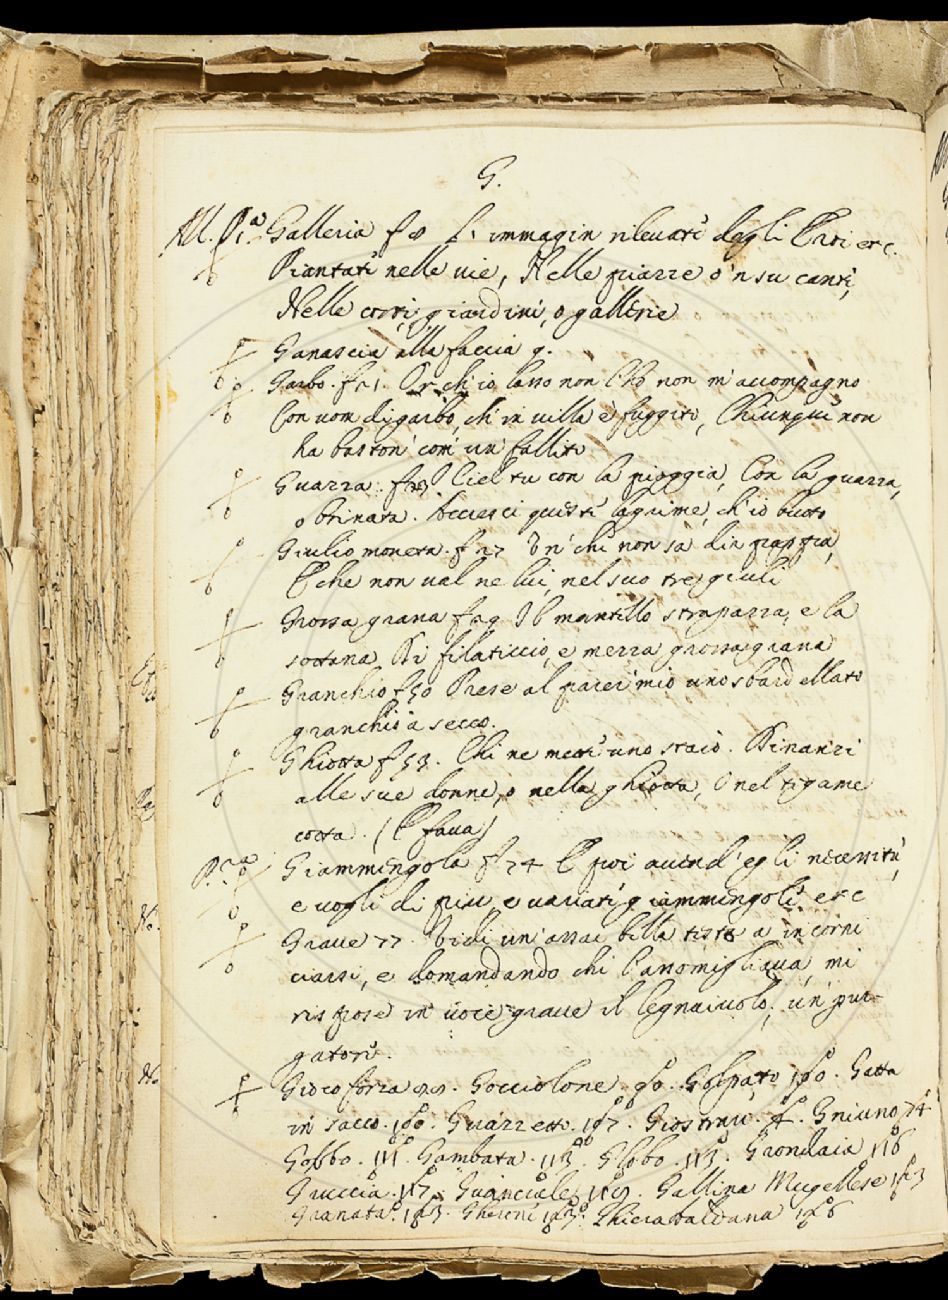 G.
All. P.a Galleria f 8 immagin rilevati degli etc.
Piantati nelle vie, Nelle piazze o 'n su canti,
Nelle corti, giardini, o gallerie
Ganascia alla faccia 9.
Garbo. f 21. ch'io lasso non l'ho non m'accompagno
Con uom di garbo, ch'in villa è fuggito, Chiunque non
ha baston' com' un' fallito
Guazza. Ciel tu con la pioggia, Con la guazza,
ostinata. Accresci questi lagrime, ch'io butto
Giulio moneta. f 27 chi non sa dir pappa,
E che non val ne lui, nel suo tre giuli
Grossa grana f 29 Il mantello strapazza, e la
sottana, Di filaticcio, e mezza grossagrana
Granchio f 50 Prese al parer mio uno sbardellato
granchio a secco.
Ghiotta f 53. Chi ne mette uno staio. Dinanzi
alle sue donne, o nella ghiotta, O nel tigame
cotta. (E fava)
Giammengola f 74 E poi avend' egli necessità,
e vogli di più, e variati giammengoli etc
Grave 77. Vidi un' assai bella testa a' incorni
ciarsi, e domandando chi l'assomigliava, mi
rispose in voce grave il legnaiuolo; un' pur-
gatori.
Gioco forza. Gocciolone. 90. Gatta
in sacco. 100. Guazzetto. 107. Gniuno 74
Gobbo. 111. Gambata. 113. Globo. 113. Grondaia 116
Gruccia. 117. Guanciale, 119. Gallina Mugellese 123
Granata. 123. Gheroni 123. Ghierabaldana 126